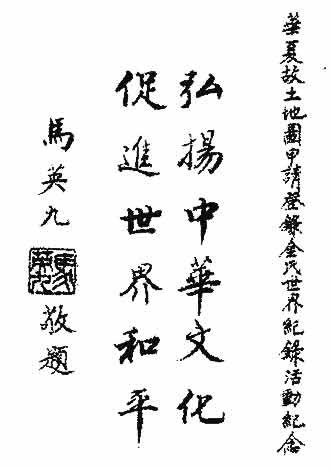 華夏故土地圖申請登錄金氏世界紀錄活動紀念
弘揚中華文化
促進世界和平
馬英九
敬題